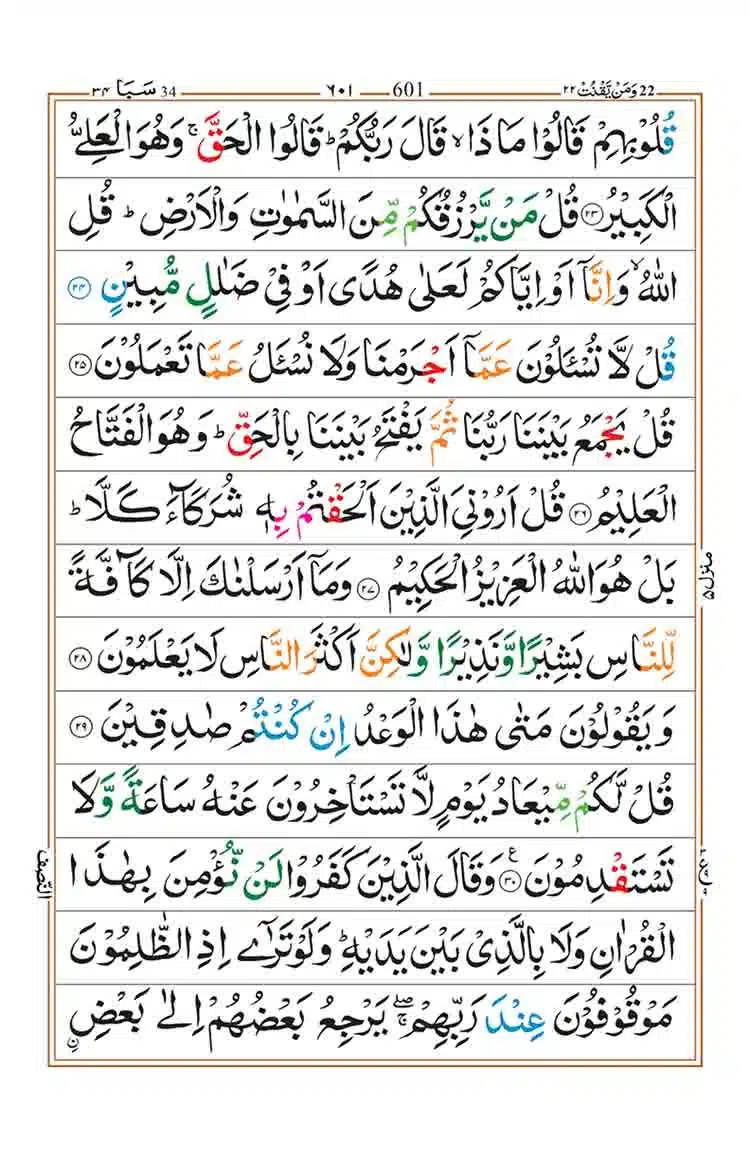 ٣٤ سَبَا 34 ٦٠١ 601 وَمَنْ يَّقْنُتْ ٢٢ 22
قُلُوْبِهِمْ قَالُوْا مَا ذَا ۙ قَالَ رَبُّكُمْ ؕ قَالُوا الْحَقَّ ۚ وَهُوَ الْعَلِىُّ
الْكَبِيْرُ ﴿۲۳﴾ قُلْ مَنْ يَّرْزُقُكُمْ مِّنَ السَّمٰوٰتِ وَالْاَرْضِ ؕ قُلِ
اللّٰهُ ۙ وَاِنَّاۤ اَوْ اِيَّاكُمْ لَعَلٰى هُدًى اَوْ فِىْ ضَلٰلٍ مُّبِيْنٍ ﴿۲۴﴾
قُلْ لَّا تُسْـَٔلُوْنَ عَمَّاۤ اَجْرَمْنَا وَلَا نُسْـَٔلُ عَمَّا تَعْمَلُوْنَ ﴿۲۵﴾
قُلْ يَجْمَعُ بَيْنَنَا رَبُّنَا ثُمَّ يَفْتَحُ بَيْنَنَا بِالْحَقِّ ؕ وَهُوَ الْفَتَّاحُ
الْعَلِيْمُ ﴿۲۶﴾ قُلْ اَرُوْنِىَ الَّذِيْنَ اَلْحَقْتُمْ بِهٖ شُرَكَآءَ كَلَّا ؕ
بَلْ هُوَ اللّٰهُ الْعَزِيْزُ الْحَكِيْمُ ﴿۲۷﴾ وَمَاۤ اَرْسَلْنٰكَ اِلَّا كَآفَّةً
لِّلنَّاسِ بَشِيْرًا وَّنَذِيْرًا وَّلٰكِنَّ اَكْثَرَ النَّاسِ لَا يَعْلَمُوْنَ ﴿۲۸﴾
وَيَقُوْلُوْنَ مَتٰى هٰذَا الْوَعْدُ اِنْ كُنْتُمْ صٰدِقِيْنَ ﴿۲۹﴾
قُلْ لَّكُمْ مِّيْعَادُ يَوْمٍ لَّا تَسْتَاْخِرُوْنَ عَنْهُ سَاعَةً وَّلَا
تَسْتَقْدِمُوْنَ ﴿۳۰﴾ ع وَقَالَ الَّذِيْنَ كَفَرُوْا لَنْ نُّؤْمِنَ بِهٰذَا
الْقُرْاٰنِ وَلَا بِالَّذِىْ بَيْنَ يَدَيْهِ ؕ وَلَوْ تَرٰٓى اِذِ الظّٰلِمُوْنَ
مَوْقُوْفُوْنَ عِنْدَ رَبِّهِمْ ۖۚ يَرْجِعُ بَعْضُهُمْ اِلٰى بَعْضِ ۨ
منزل ۵
النصف